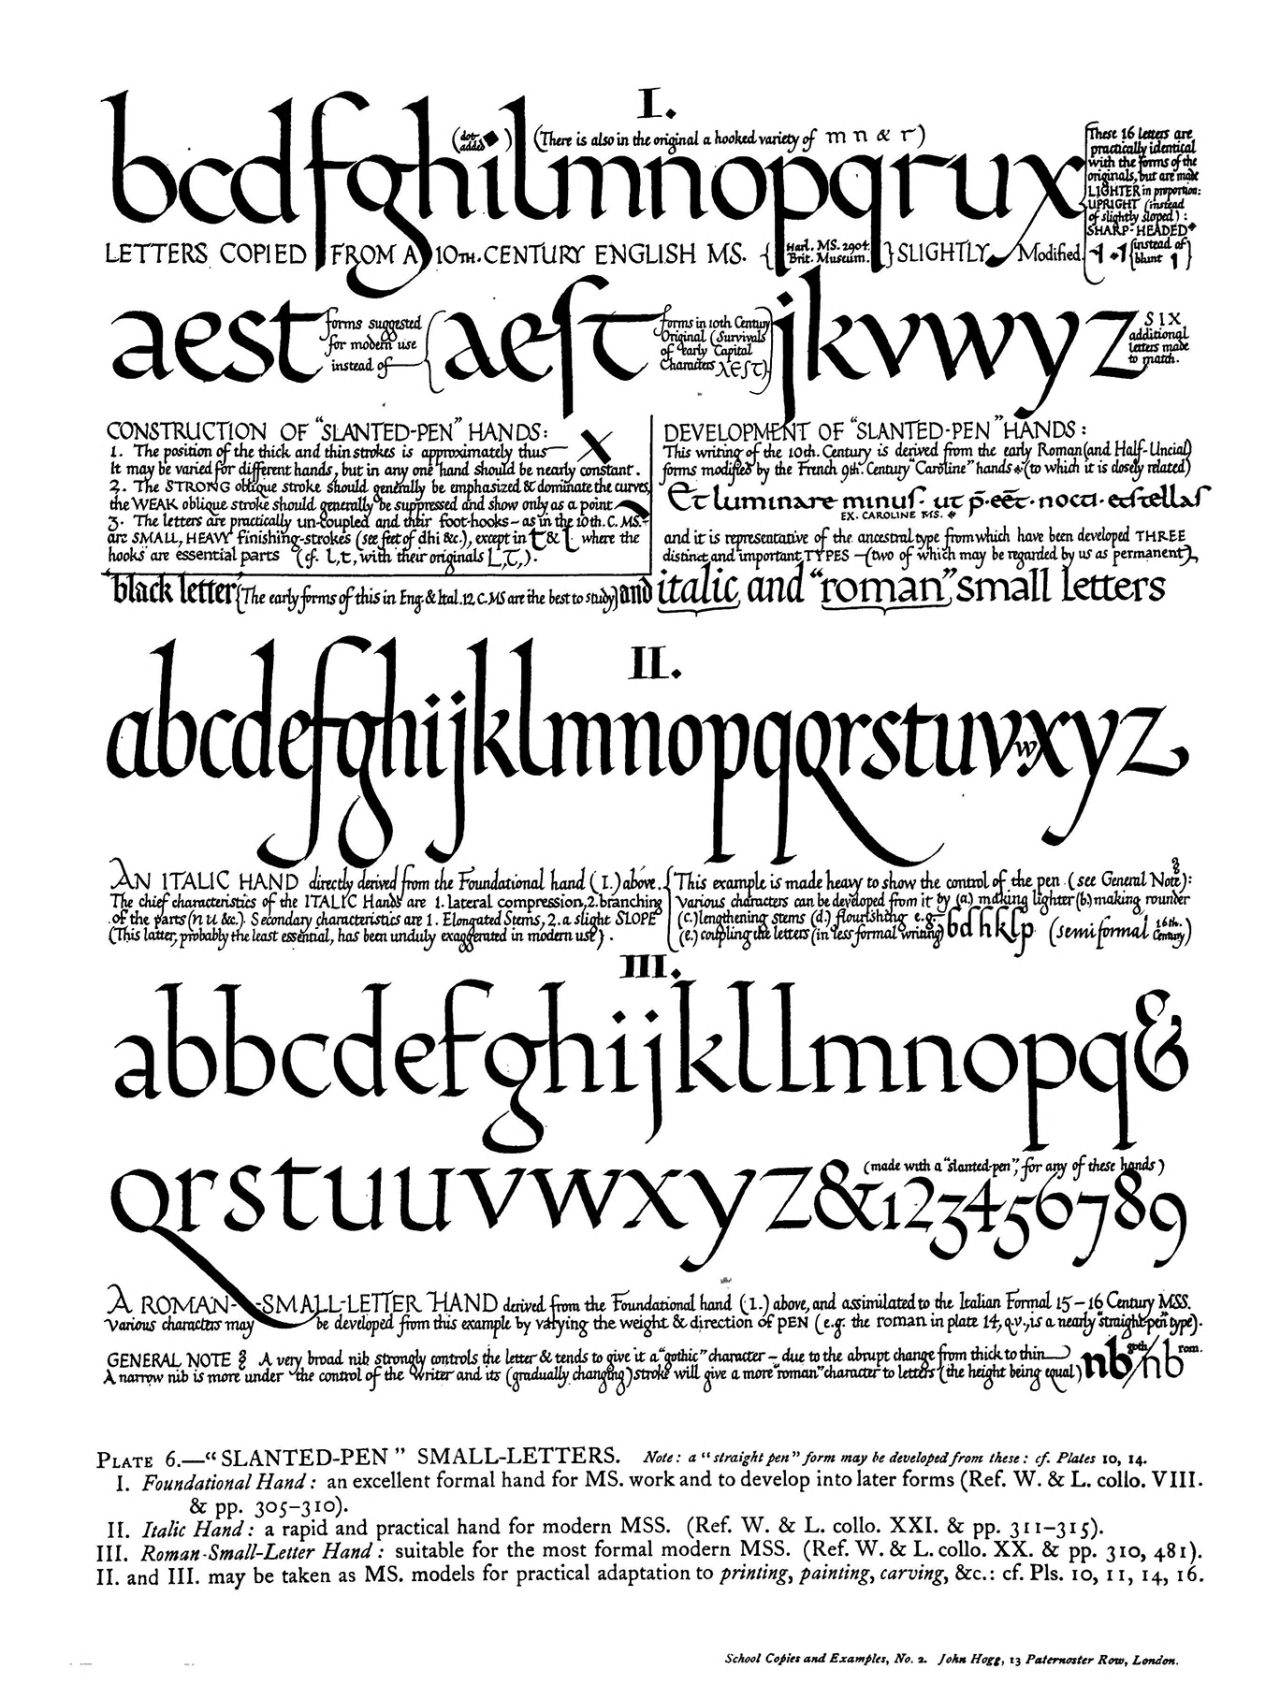 I.
bcdfghilmnopqrux
(dot added ◆)
(There is also in the original a hooked variety of m n & r)
These 16 letters are
practically identical
with the forms of the
originals, but are made
LIGHTER in proportion:
UPRIGHT (instead
of slightly sloped):
SHARP-HEADED
(instead of
blunt 1)
LETTERS COPIED FROM A 10TH. CENTURY ENGLISH MS. {Harl. MS. 2904. Brit. Museum.} SLIGHTLY Modified
aest
forms suggested
for modern use
instead of
aeſt
forms in 10th Century
Original (Survivals
of early Capital
Characters
jkvwyz
SIX
additional
letters made
to match.
CONSTRUCTION OF "SLANTED-PEN" HANDS:
1. The position of the thick and thin strokes is approximately thus X
It may be varied for different hands, but in any one hand should be nearly constant.
2. The STRONG oblique stroke should generally be emphasized & dominate the curves,
the WEAK oblique stroke should generally be suppressed and show only as a point
3. The letters are practically un-coupled and their foot-hooks — as in the 10th. C. MS. —
are SMALL, HEAVY finishing-strokes (see feet of dhi &c.), except in t & l where the
hooks are essential parts (cf. l, t, with their originals L, T,).
DEVELOPMENT OF "SLANTED-PEN" HANDS:
This writing of the 10th. Century is derived from the early Roman (and Half-Uncial)
forms modified by the French 9th. Century "Caroline" hands (to which it is closely related)
Et luminare minuſ. ut p̄. eēt. nocti. et ſtellaſ
EX. CAROLINE MS.
and it is representative of the ancestral type from which have been developed THREE
distinct and important TYPES — (two of which may be regarded by us as permanent),
"black letter" (The early forms of this in Eng. & Ital. 12.C. MS are the best to study) and italic and "roman" small letters
II.
abcdefghijklmnopqQrstuvwxyz
AN ITALIC HAND directly derived from the Foundational hand (I.) above.
The chief characteristics of the ITALIC Hands are 1. lateral compression, 2. branching
of the parts (n u &c.). Secondary characteristics are 1. Elongated Stems, 2. a slight SLOPE
(This latter, probably the least essential, has been unduly exaggerated in modern use).
This example is made heavy to show the control of the pen (see General Note):
Various characters can be developed from it by (a.) making lighter (b.) making rounder
(c.) lengthening stems (d.) flourishing e.g.
(e.) coupling the letters (in less formal writing) bdhklp (semiformal 16th. Century)
III.
abbcdefghijkllmnopq&
Qrstuuvwxyz&123456789
(made with a "slanted-pen", for any of these hands)
A ROMAN-SMALL-LETTER HAND derived from the Foundational hand (I.) above, and assimilated to the Italian Formal 15–16 Century MSS.
Various characters may be developed from this example by varying the weight & direction of PEN (e.g. the roman in plate 14, q.v., is a nearly "straight-pen" type).
GENERAL NOTE A very broad nib strongly controls the letter & tends to give it a "gothic" character — due to the abrupt change from thick to thin
A narrow nib is more under the control of the writer and its (gradually changing) stroke will give a more "roman" character to letters (the height being equal) nb goth. / nb rom.
PLATE 6.—"SLANTED-PEN" SMALL-LETTERS. Note: a "straight pen" form may be developed from these: cf. Plates 10, 14.
I. Foundational Hand: an excellent formal hand for MS. work and to develop into later forms (Ref. W. & L. collo. VIII.
& pp. 305–310).
II. Italic Hand: a rapid and practical hand for modern MSS. (Ref. W. & L. collo. XXI. & pp. 311–315).
III. Roman-Small-Letter Hand: suitable for the most formal modern MSS. (Ref. W. & L. collo. XX. & pp. 310, 481).
II. and III. may be taken as MS. models for practical adaptation to printing, painting, carving, &c.: cf. Pls. 10, 11, 14, 16.
School Copies and Examples, No. 2. John Hogg, 13 Paternoster Row, London.